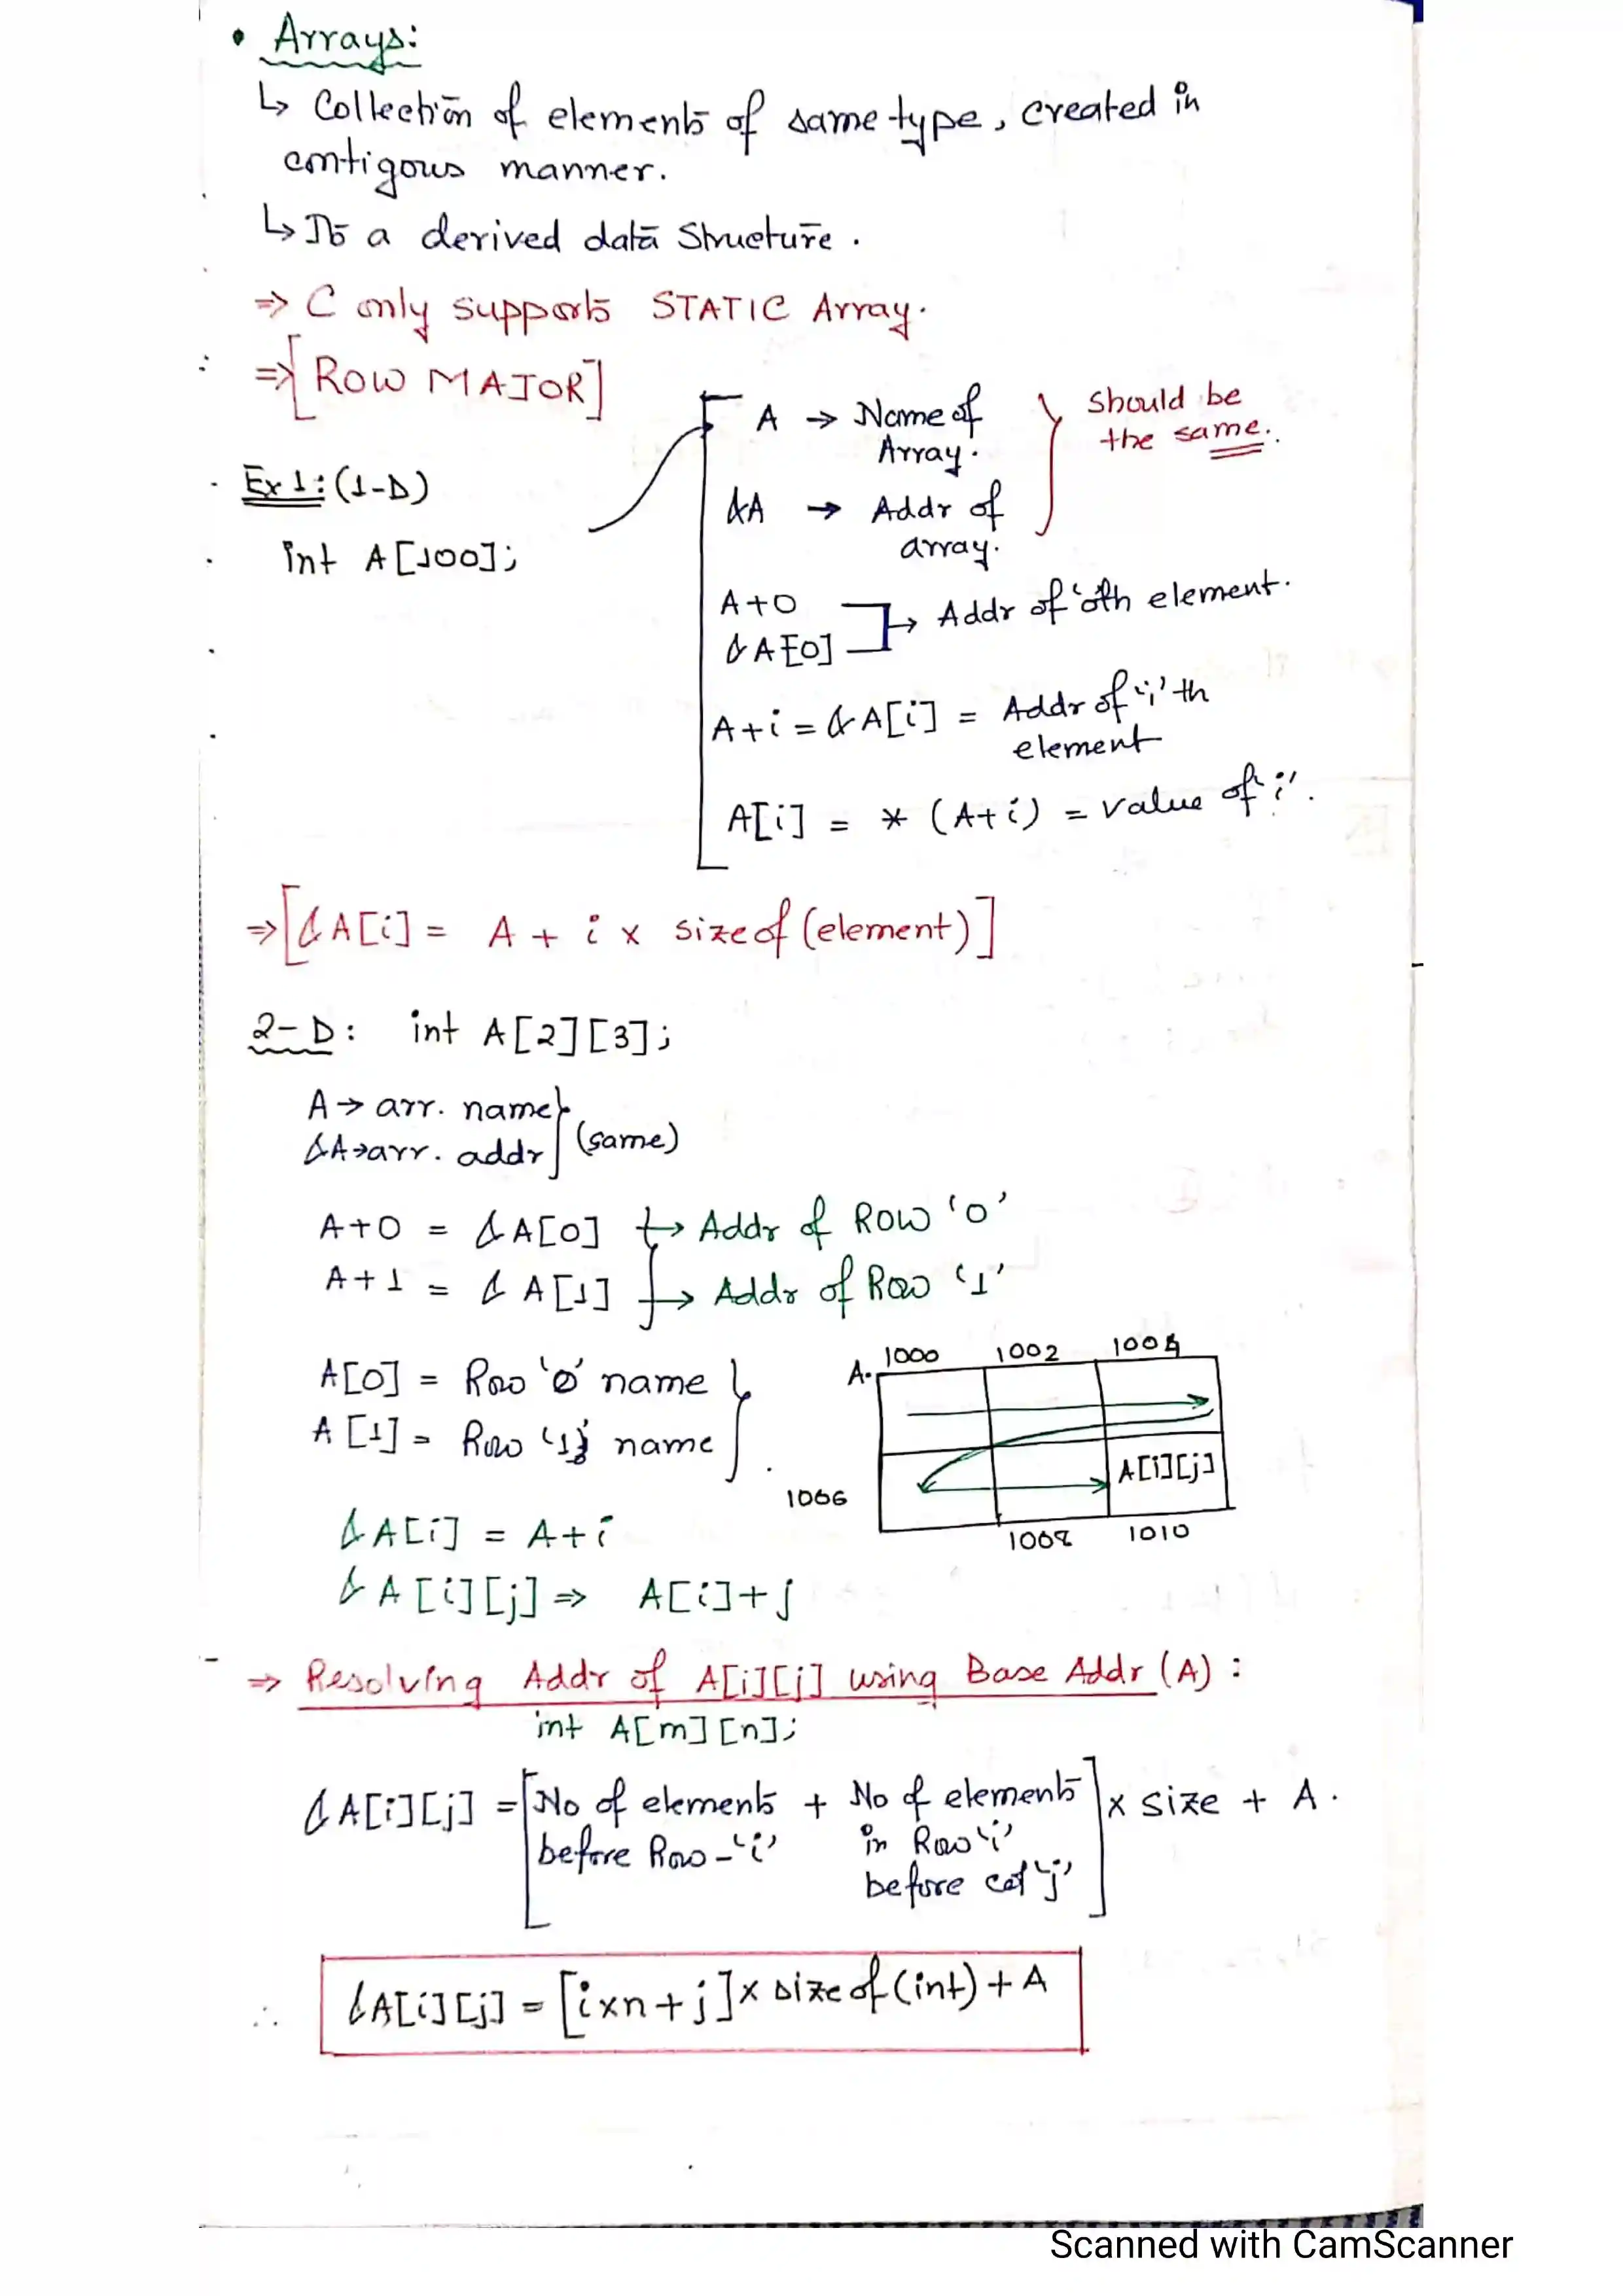 • Arrays:
↳ Collection of elements of same type, created in
contigous manner.
↳ Its a derived data Structure.
⇒ C only supports STATIC Array.
⇒ [ROW MAJOR]
A → Name of
Array.
&A → Addr of
array.
should be
the same..
Ex 1: (1-D)
int A[100];
A+0
&A[0] → Addr of '0th element.
A+i = &A[i] = Addr of 'i' th
element
A[i] = * (A+i) = value of 'i'.
⇒ [&A[i] = A + i x sizeof (element)]
2-D: int A[2][3];
A → arr. name
&A → arr. addr (same)
A+0 = &A[0] → Addr of ROW '0'
A+1 = &A[1] → Addr of Row '1'
A[0] = Row '0' name
A[1] = Row '1' name
A. 1000 1002 1004
A[i][j]
1006
1008 1010
&A[i] = A+i
&A[i][j] ⇒ A[i]+j
⇒ Resolving Addr of A[i][j] using Base Addr (A):
int A[m][n];
&A[i][j] = [No of elements + No of elements] x size + A.
before Row-'i' in Row 'i'
before col 'j'
∴ &A[i][j] = [ixn+j] x sizeof(int) + A
Scanned with CamScanner